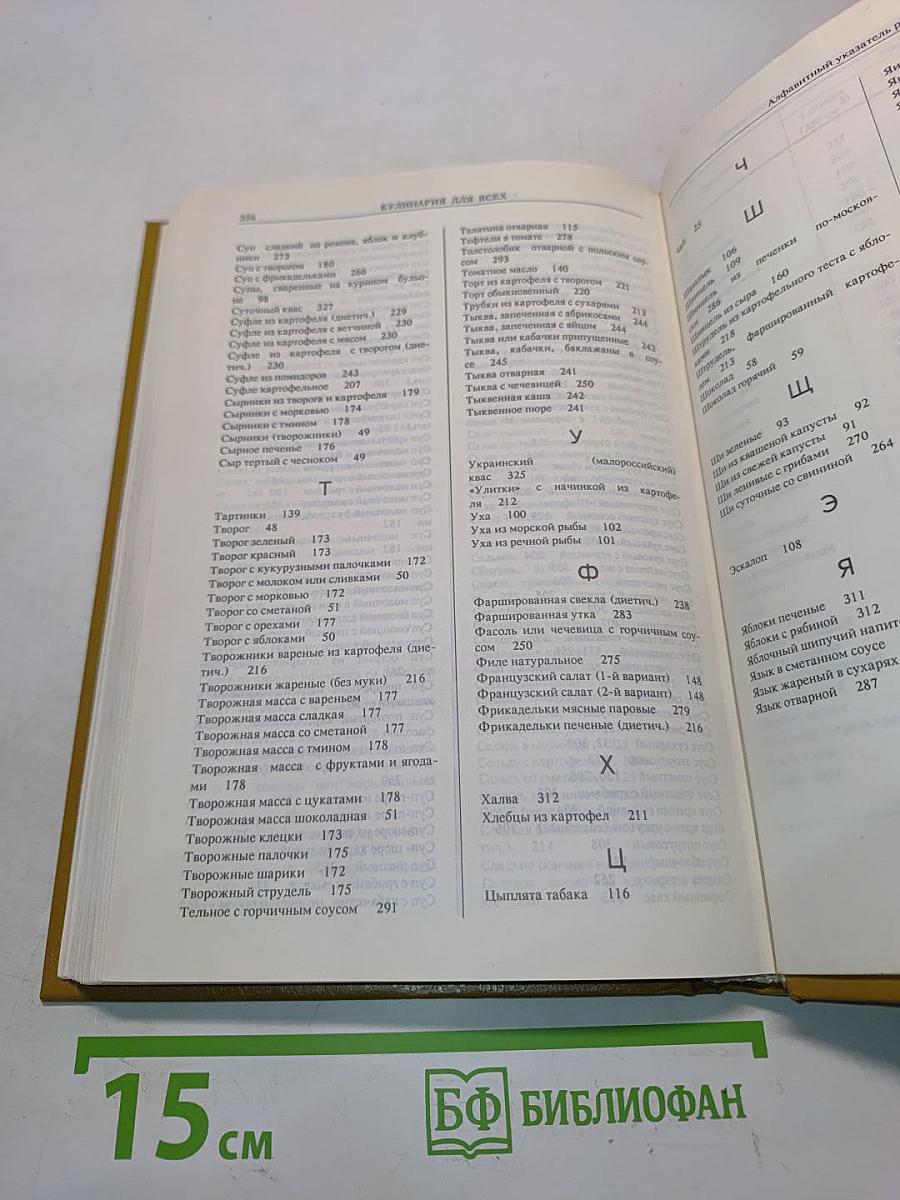 356
КУЛИНАРИЯ ДЛЯ ВСЕХ
Суп сладкий из ревеня, яблок и клуб-
ники 273
Суп с творогом 180
Суп с фрикадельками 266
Супы, сваренные на курином бульо-
не 98
Суточный квас 327
Суфле из картофеля (диетич.) 229
Суфле из картофеля с ветчиной 230
Суфле из картофеля с мясом 230
Суфле из картофеля с творогом (дие-
тич.) 230
Суфле из помидоров 243
Суфле картофельное 207
Сырники из творога и картофеля 179
Сырники с морковью 174
Сырники с тмином 178
Сырники (творожники) 49
Сырное печенье 176
Сыр тертый с чесноком 49
Т
Тартинки 139
Творог 48
Творог зеленый 173
Творог красный 173
Творог с кукурузными палочками 172
Творог с молоком или сливками 50
Творог с морковью 172
Творог со сметаной 51
Творог с орехами 177
Творог с яблоками 50
Творожники вареные из картофеля (дие-
тич.) 216
Творожники жареные (без муки) 216
Творожная масса с вареньем 177
Творожная масса сладкая 177
Творожная масса со сметаной 177
Творожная масса с тмином 178
Творожная масса с фруктами и ягода-
ми 178
Творожная масса с цукатами 178
Творожная масса шоколадная 51
Творожные клецки 173
Творожные палочки 175
Творожные шарики 172
Творожный струдель 175
Тельное с горчичным соусом 291
Телятина отварная 115
Тефтели в томате 278
Толстолобик отварной с польским соу-
сом 293
Томатное масло 140
Торт из картофеля с творогом 221
Торт обыкновенный 220
Трубки из картофеля с сухарями 213
Тыква, запеченная с абрикосами 244
Тыква, запеченная с яйцом 244
Тыква или кабачки припущенные 242
Тыква, кабачки, баклажаны в соу-
се 245
Тыква отварная 241
Тыква с чечевицей 250
Тыквенная каша 242
Тыквенное пюре 241
У
Украинский (малороссийский)
квас 325
«Улитки» с начинкой из картофе-
ля 212
Уха 100
Уха из морской рыбы 102
Уха из речной рыбы 101
Ф
Фаршированная свекла (диетич.) 238
Фаршированная утка 283
Фасоль или чечевица с горчичным соу-
сом 250
Филе натуральное 275
Французский салат (1-й вариант) 148
Французский салат (2-й вариант) 148
Фрикадельки мясные паровые 279
Фрикадельки печеные (диетич.) 216
Х
Халва 312
Хлебцы из картофел 211
Ц
Цыплята табака 116
Алфавитный указатель
Ч
Чай 25
Ш
Шашлык 106
Шницель 109
Шницель из печенки по-москов-
ски 286
Шницель из сыра 160
Штрудель из картофельного теста с ябло-
ками 218
Штрудель, фаршированный картофе-
лем 213
Шоколад 58
Шоколад горячий 59
Щ
Щи зеленые 93
Щи из квашеной капусты 92
Щи из свежей капусты 91
Щи ленивые с грибами 270
Щи суточные со свининой 264
Э
Эскалоп 108
Я
Яблоки печеные 311
Яблоки с рябиной 312
Яблочный шипучий напит
Язык в сметанном соусе
Язык жареный в сухарях
Язык отварной 287
15 см
БФ БИБЛИОФАН